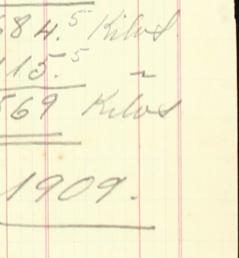 684.5 Kilos
115.5 "
569 Kilos
1909.